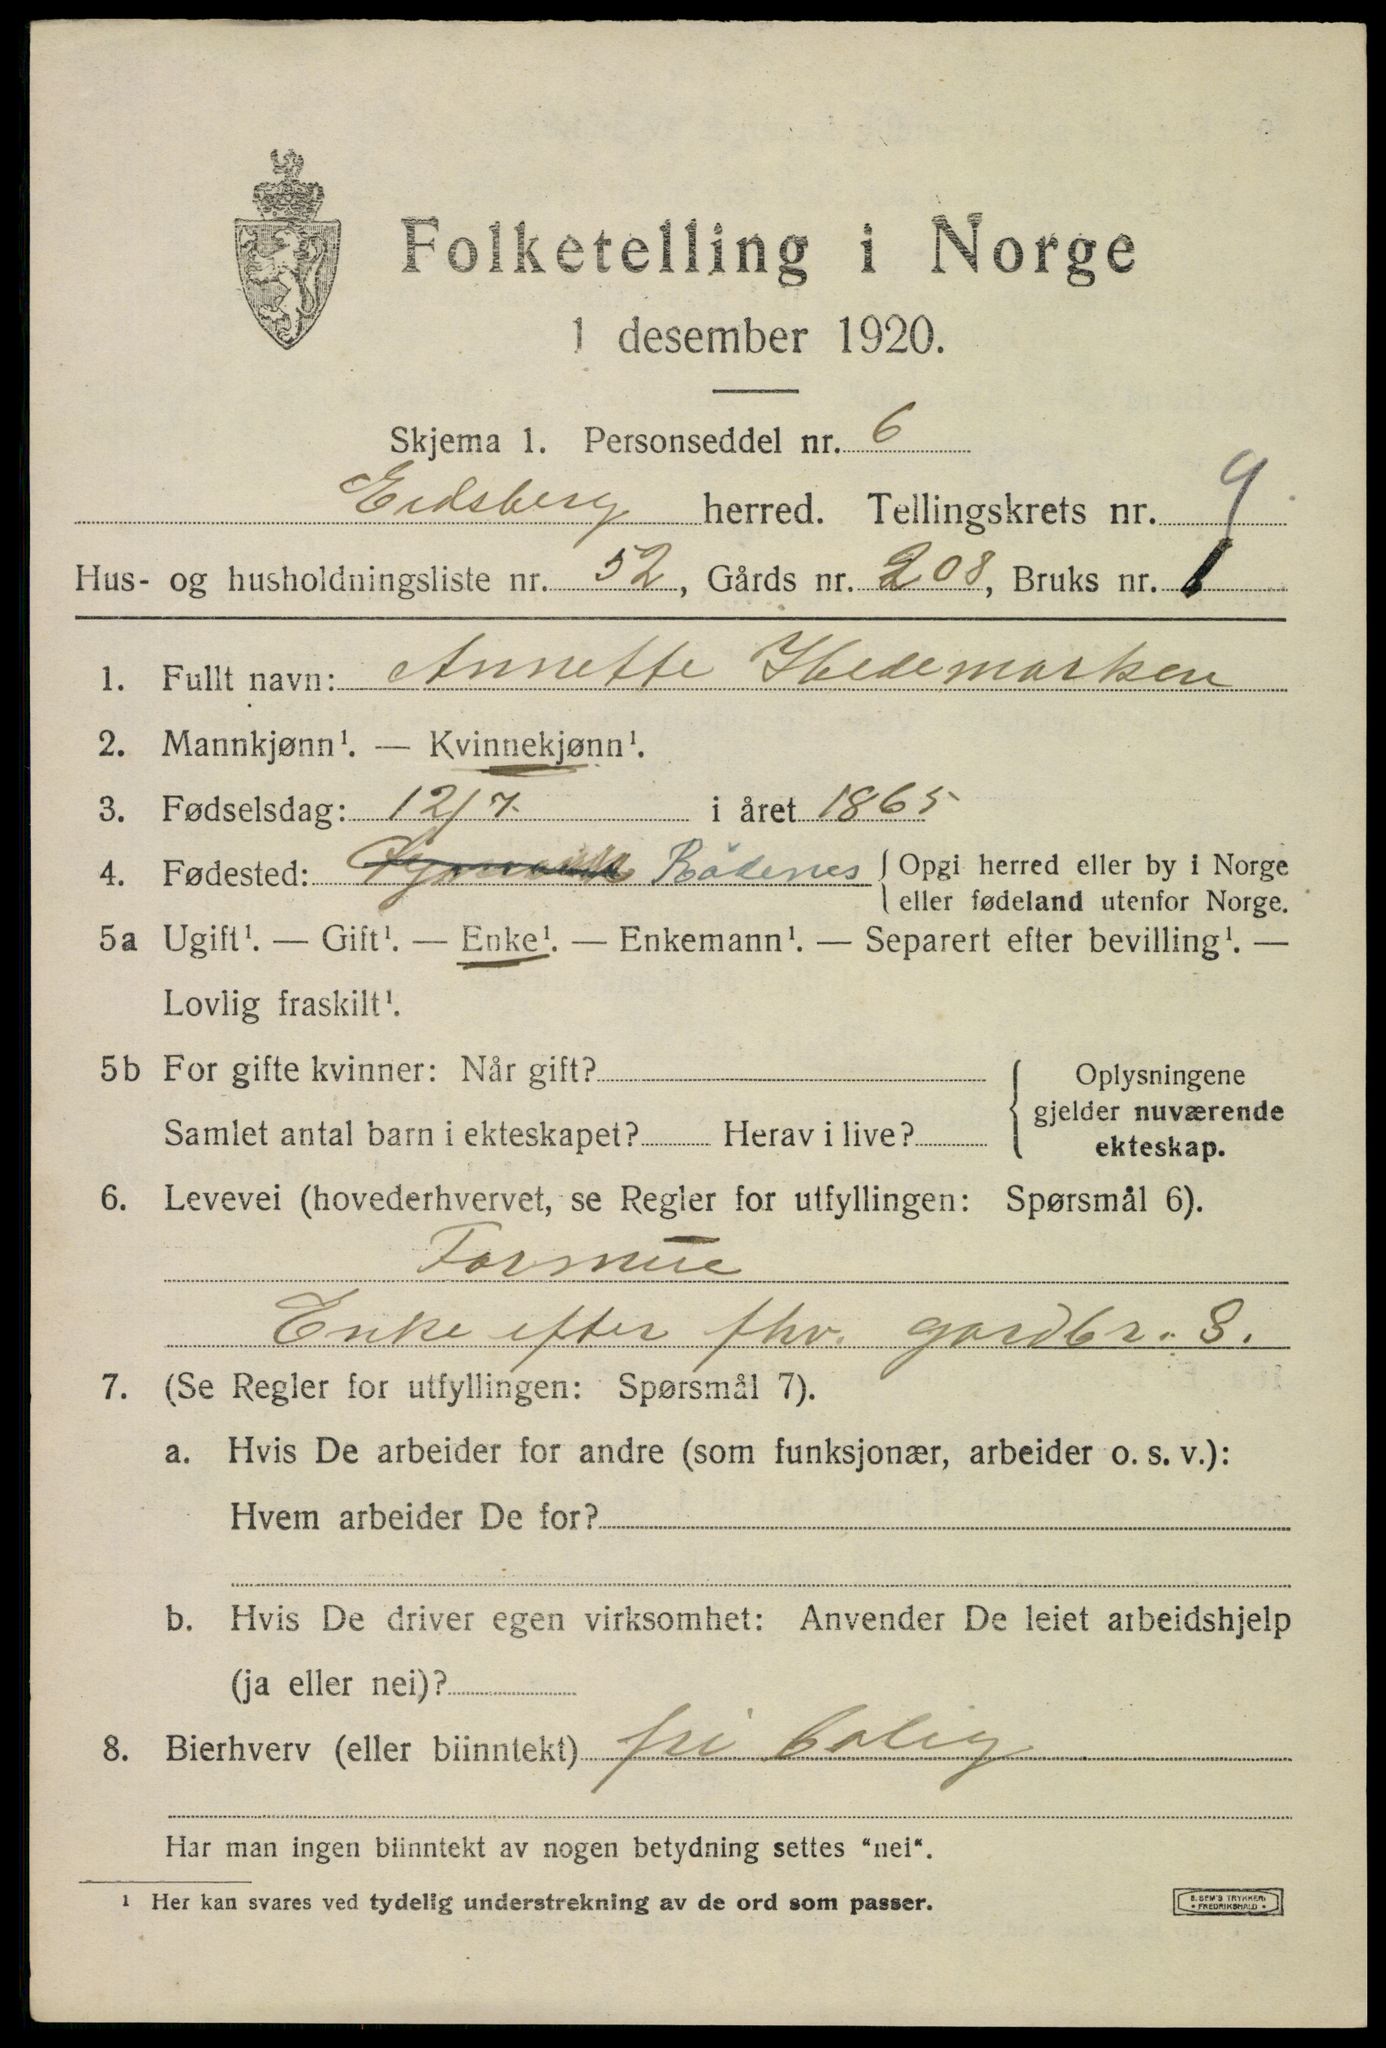 Folketelling i Norge
1 desember 1920.
Skjema 1. Personseddel nr. 6
Eidsberg herred. Tellingskrets nr. 9
Hus- og husholdningsliste nr. 52, Gårds nr. 208, Bruks nr. 1
1. Fullt navn: Annette Hedemarken
2. Mannkjønn¹. — Kvinnekjønn¹.
3. Fødselsdag: 12/7 i året 1865
4. Fødested: Rödenes { Opgi herred eller by i Norge
eller fødeland utenfor Norge.
5a Ugift¹. — Gift¹. — Enke¹. — Enkemann¹. — Separert efter bevilling¹. —
Lovlig fraskilt¹.
5b For gifte kvinner: Når gift?
Samlet antal barn i ekteskapet? Herav i live?
Oplysningene
gjelder nuværende
ekteskap.
6. Levevei (hovederhvervet, se Regler for utfyllingen: Spørsmål 6).
Formue
Enke efter fhv. gardbr. S.
7. (Se Regler for utfyllingen: Spørsmål 7).
a. Hvis De arbeider for andre (som funksjonær, arbeider o. s. v.):
Hvem arbeider De for?
b. Hvis De driver egen virksomhet: Anvender De leiet arbeidshjelp
(ja eller nei)?
8. Bierhverv (eller biinntekt) fri bolig
Har man ingen biinntekt av nogen betydning settes "nei".
¹ Her kan svares ved tydelig understrekning av de ord som passer.
E. SEM'S TRYKKERI
• FREDRIKSHALD •